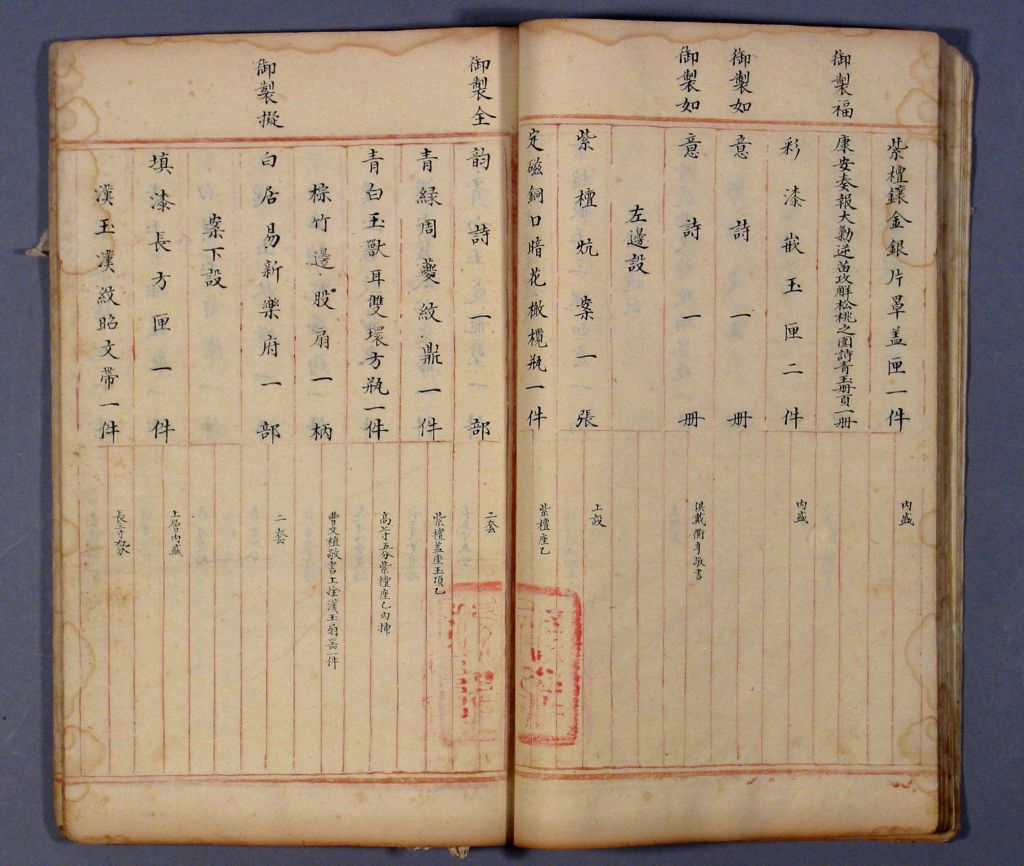 紫檀鑲金銀片罩盖匣一件 内盛
御製福
康安奏報大勦逆苗攻解松桃之圍詩青玉册頁一册
彩漆嵌玉匣二件 内盛
御製如
意詩一册
御製如
意詩一册 俱戴衢亨敬書
左邊設
紫檀炕案一張 上設
定磁銅口暗花橄欖瓶一件 紫檀座乙
御製全
韵詩一部 二套
青緑周夔紋鼎一件 紫檀盖座玉頂乙
青白玉獸耳雙環方瓶一件 高七寸五分紫檀座乙内揷
棕竹邊股扇一柄 曹文埴敬書上拴漢玉扇器一件
御製擬
白居易新樂府一部 二套
案下設
填漆長方匣一件 上層内盛
漢玉漢紋昭文帶一件 長三寸